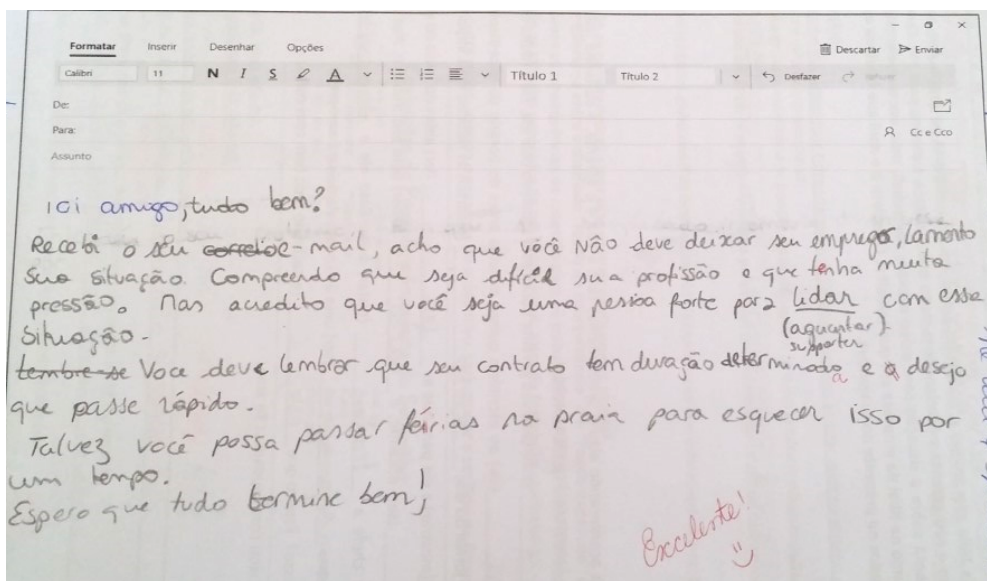 Formatar Inserir Desenhar Opções Descartar Enviar
Calibri 11 N I S A Título 1 Título 2 Desfazer
De:
Para: Cc e Cco
Assunto
oi amigo, tudo bem?
Recebi o seu correioe-mail, acho que você Não deve deixar seu emprego, lamento
sua situação. Compreendo que seja difícil sua profissão e que tenha muita
pressão. Mas acredito que você seja uma pessoa forte para lidar com essa
situação.
(aguantar)
supporter
tembre-se Voce deve lembrar que seu contrato tem duração determinado a e desejo
que passe rápido.
Talvez você possa passar férias na praia para esquecer isso por
um tempo.
Espero que tudo termine bem!
Excelente!